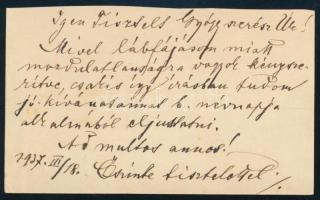 Igen Tisztelt Gyógyszerész Úr!
Mivel lábfájásom miatt
mozdulatlanságra vagyok kénysze-
rítve, csakis így írásban tudom
jó kivánataimat b. névnapja
alkalmából eljuttatni.
Ad multos annos!
1937. III/18. Őszinte tisztelettel